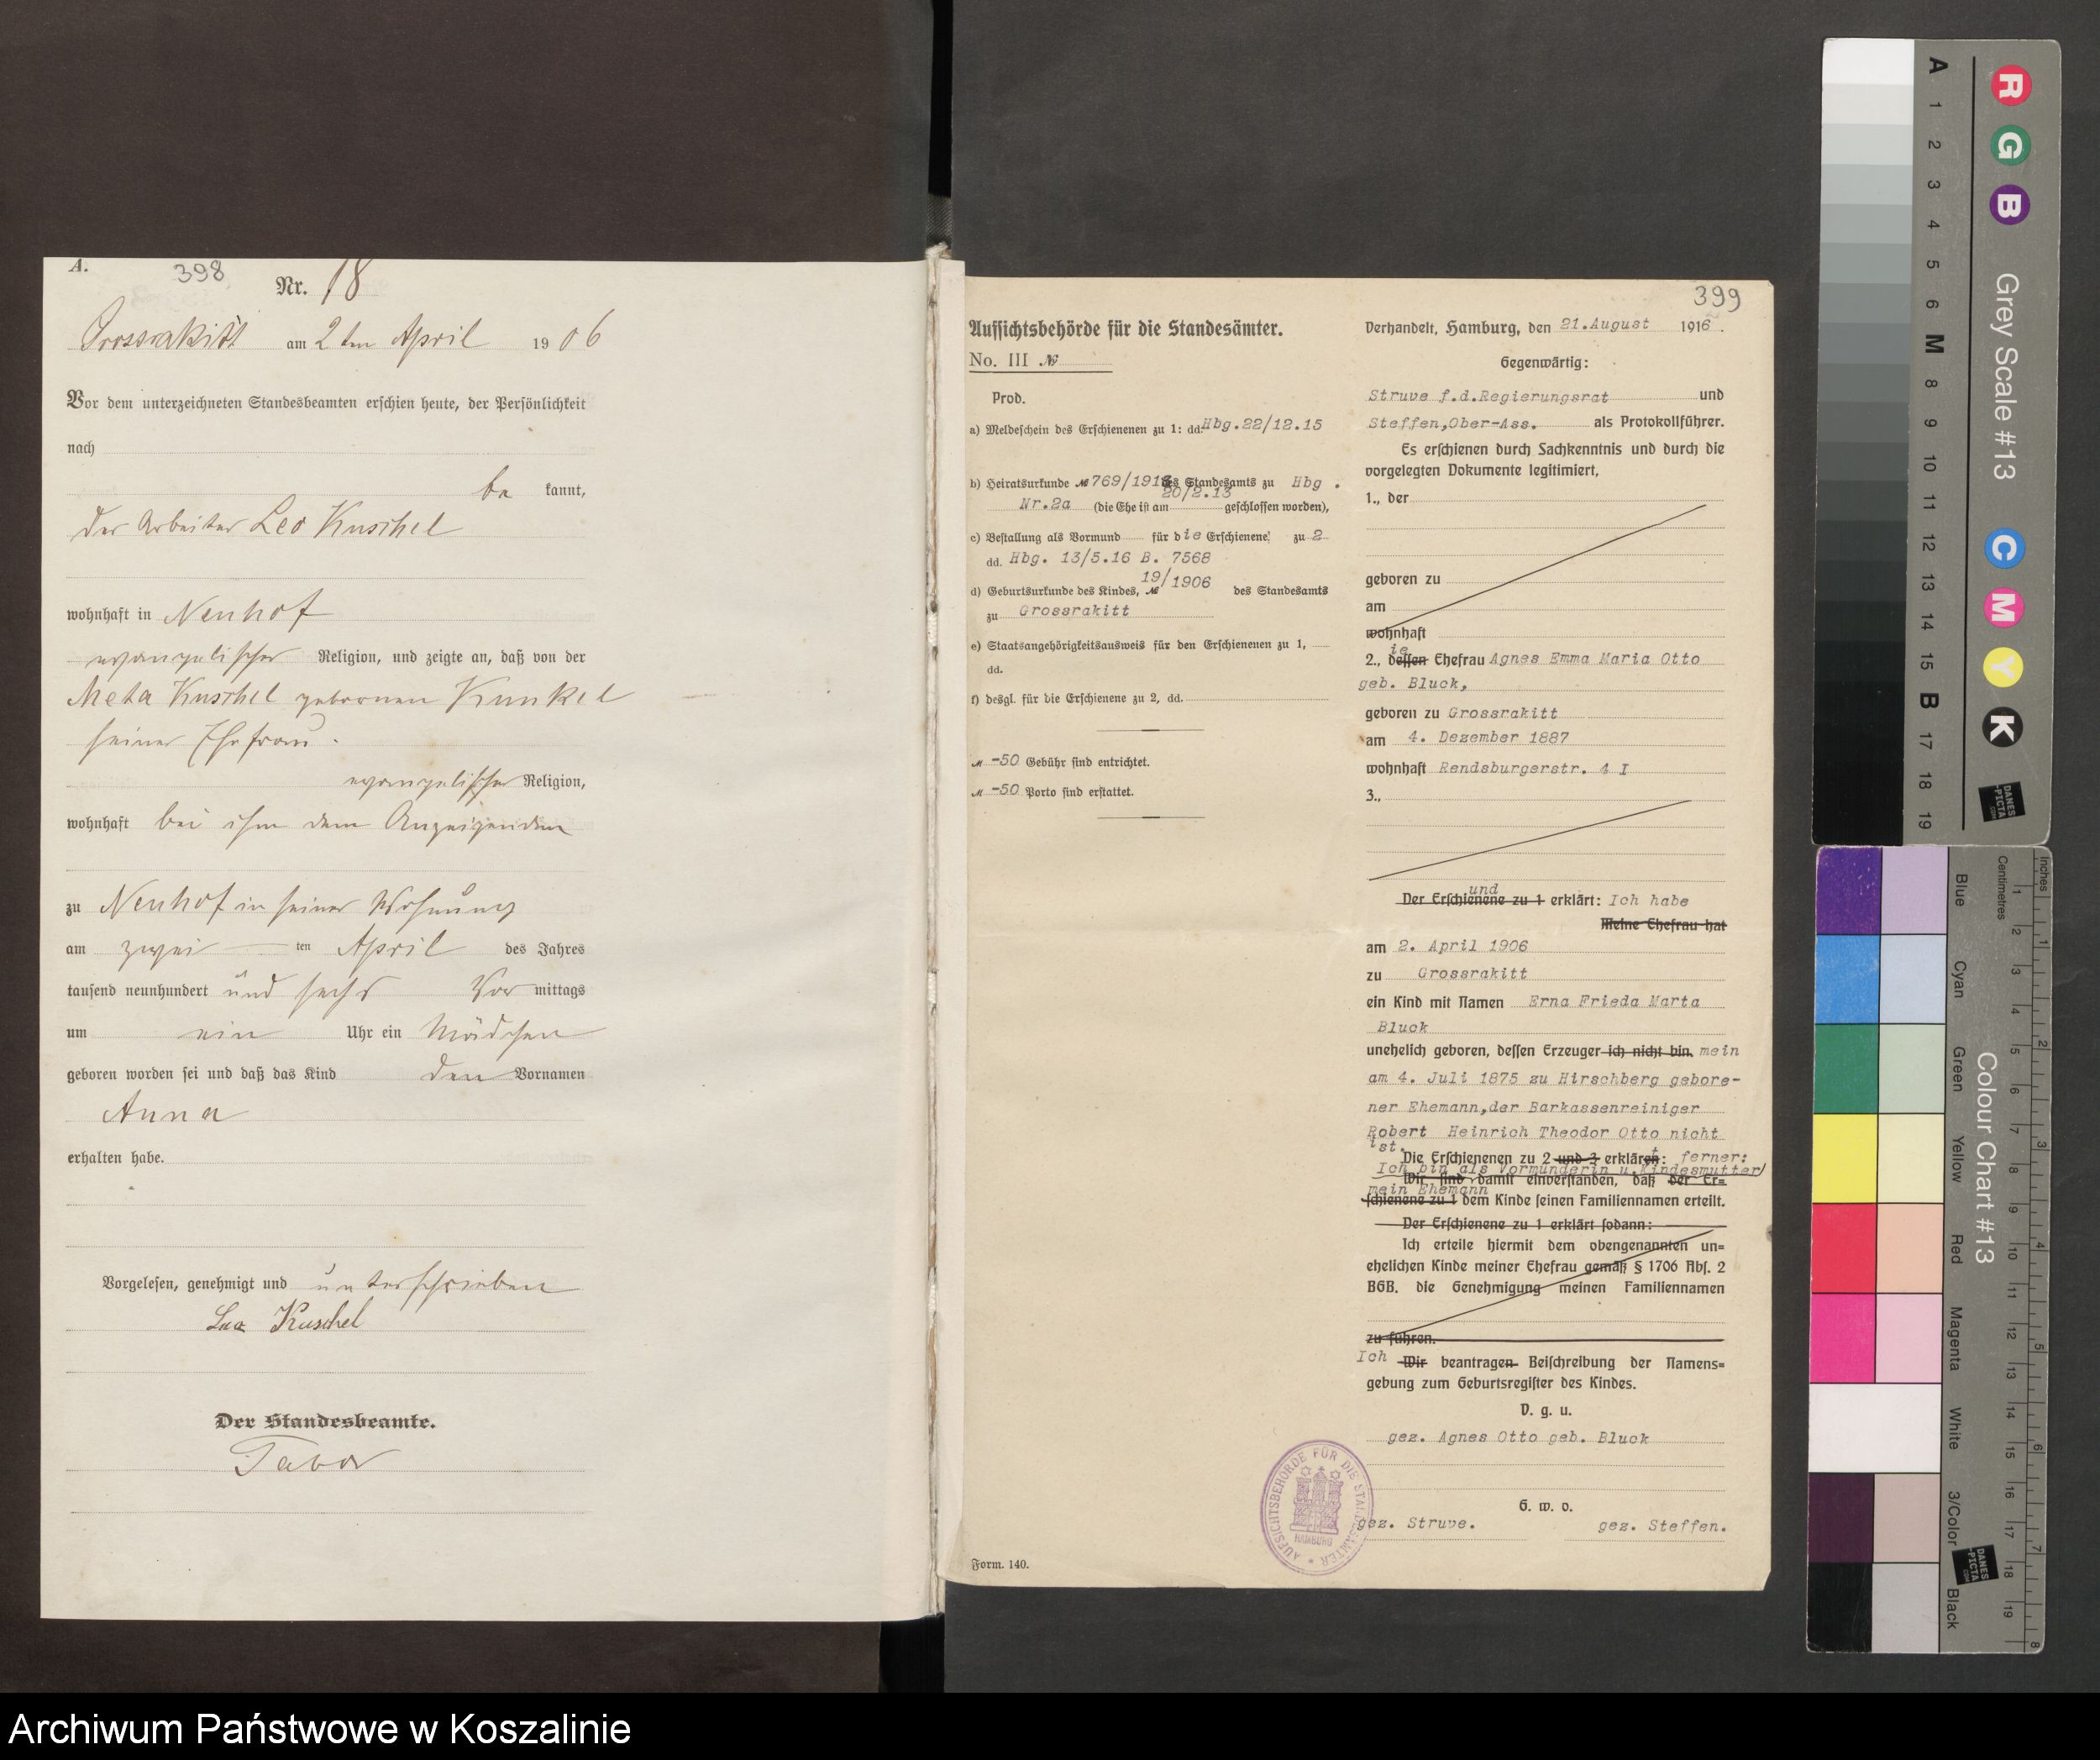 A.
398
Nr. 18
Grossrakitt am 2ten April 1906
Vor dem unterzeichneten Standesbeamten erschien heute, der Persönlichkeit
nach
be kannt,
der Arbeiter Leo Kuschel
wohnhaft in Neuhof
evangelischer Religion, und zeigte an, daß von der
Meta Kuschel geborenen Kunkel
seiner Ehefrau
evangelischer Religion,
wohnhaft bei ihm dem Anzeigenden
zu Neuhof in seiner Wohnung
am zwei ten April des Jahres
tausend neunhundert und sechs Vor mittags
um ein Uhr ein Mädchen
geboren worden sei und daß das Kind den Vornamen
Anna
erhalten habe.
Vorgelesen, genehmigt und unterschrieben
Leo Kuschel
Der Standesbeamte.
Tabor
399
Aufsichtsbehörde für die Standesämter.
No. III №
Prod.
a) Meldeschein des Erschienenen zu 1: dd. Hbg.22/12.15
b) Heiratsurkunde № 769/1913 des Standesamts zu Hbg.
20/2.13
Nr.2a (die Ehe ist am geschlossen worden),
c) Bestallung als Vormund für die Erschienene zu 2
dd. Hbg. 13/5.16 B. 7568
19/1906
d) Geburtsurkunde des Kindes, № des Standesamts
zu Grossrakitt
e) Staatsangehörigkeitsausweis für den Erschienenen zu 1,
dd.
f) desgl. für die Erschienene zu 2, dd.
M -50 Gebühr sind entrichtet.
M -50 Porto sind erstattet.
Form. 140.
Verhandelt, Hamburg, den 21.August 1916.
Gegenwärtig:
Struve f.d.Regierungsrat und
Steffen,Ober-Ass. als Protokollführer.
Es erschienen durch Sachkenntnis und durch die
vorgelegten Dokumente legitimiert,
1., der
geboren zu
am
wohnhaft
ie
2., dessen Ehefrau Agnes Emma Maria Otto
geb. Bluck,
geboren zu Grossrakitt
am 4. Dezember 1887
wohnhaft Rendsburgerstr. 4 I
3.,
und
Der Erschienene zu 1 erklärt: Ich habe
Meine Ehefrau hat
am 2. April 1906
zu Grossrakitt
ein Kind mit Namen Erna Frieda Marta
Bluck
unehelich geboren, dessen Erzeuger ich nicht bin. mein
am 4. Juli 1875 zu Hirschberg gebore-
ner Ehemann,der Barkassenreiniger
Robert Heinrich Theodor Otto nicht
ist.
Die Erschienenen zu 2 und 3 erklären: ferner:
Ich bin als Vormünderin u.Kindesmutter
Wir sind damit einverstanden, daß der Er=
mein Ehemann
schienene zu 1 dem Kinde seinen Familiennamen erteilt.
Der Erschienene zu 1 erklärt sodann:
Ich erteile hiermit dem obengenannten un=
ehelichen Kinde meiner Ehefrau gemäß § 1706 Abs. 2
BGB. die Genehmigung meinen Familiennamen
zu führen.
Ich Wir beantragen Beischreibung der Namens=
gebung zum Geburtsregister des Kindes.
V. g. u.
gez. Agnes Otto geb. Bluck
G. w. o.
gez. Struve. gez. Steffen.
AUFSICHTSBEHÖRDE FÜR DIE STANDESÄMTER
HAMBURG
R G B
Grey Scale #13
C M Y K
A 1 2 3 4 5 6 M 8 9 10 11 12 13 14 15 B 17 18 19
DANES-PICTA.COM
Inches
Centimetres
Colour Chart #13
Blue
Cyan
Green
Yellow
Red
Magenta
White
3/Color
Black
DANES-PICTA.COM
Archiwum Państwowe w Koszalinie